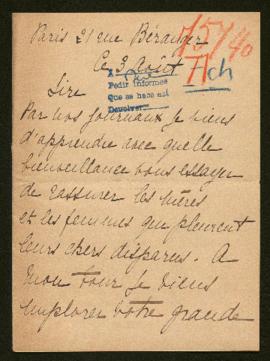 Paris 21 rue Béranger
75/40
Ce 3 Août
A
Pedir informes
Que se haga así
Devolver
Ach
Sire
Par nos journaux je viens
d'apprendre avec quelle
bienveillance vous essayez
de rassurer les mères
et les femmes qui pleurent
leurs chers disparus. A
mon tour je viens
implorer votre grande